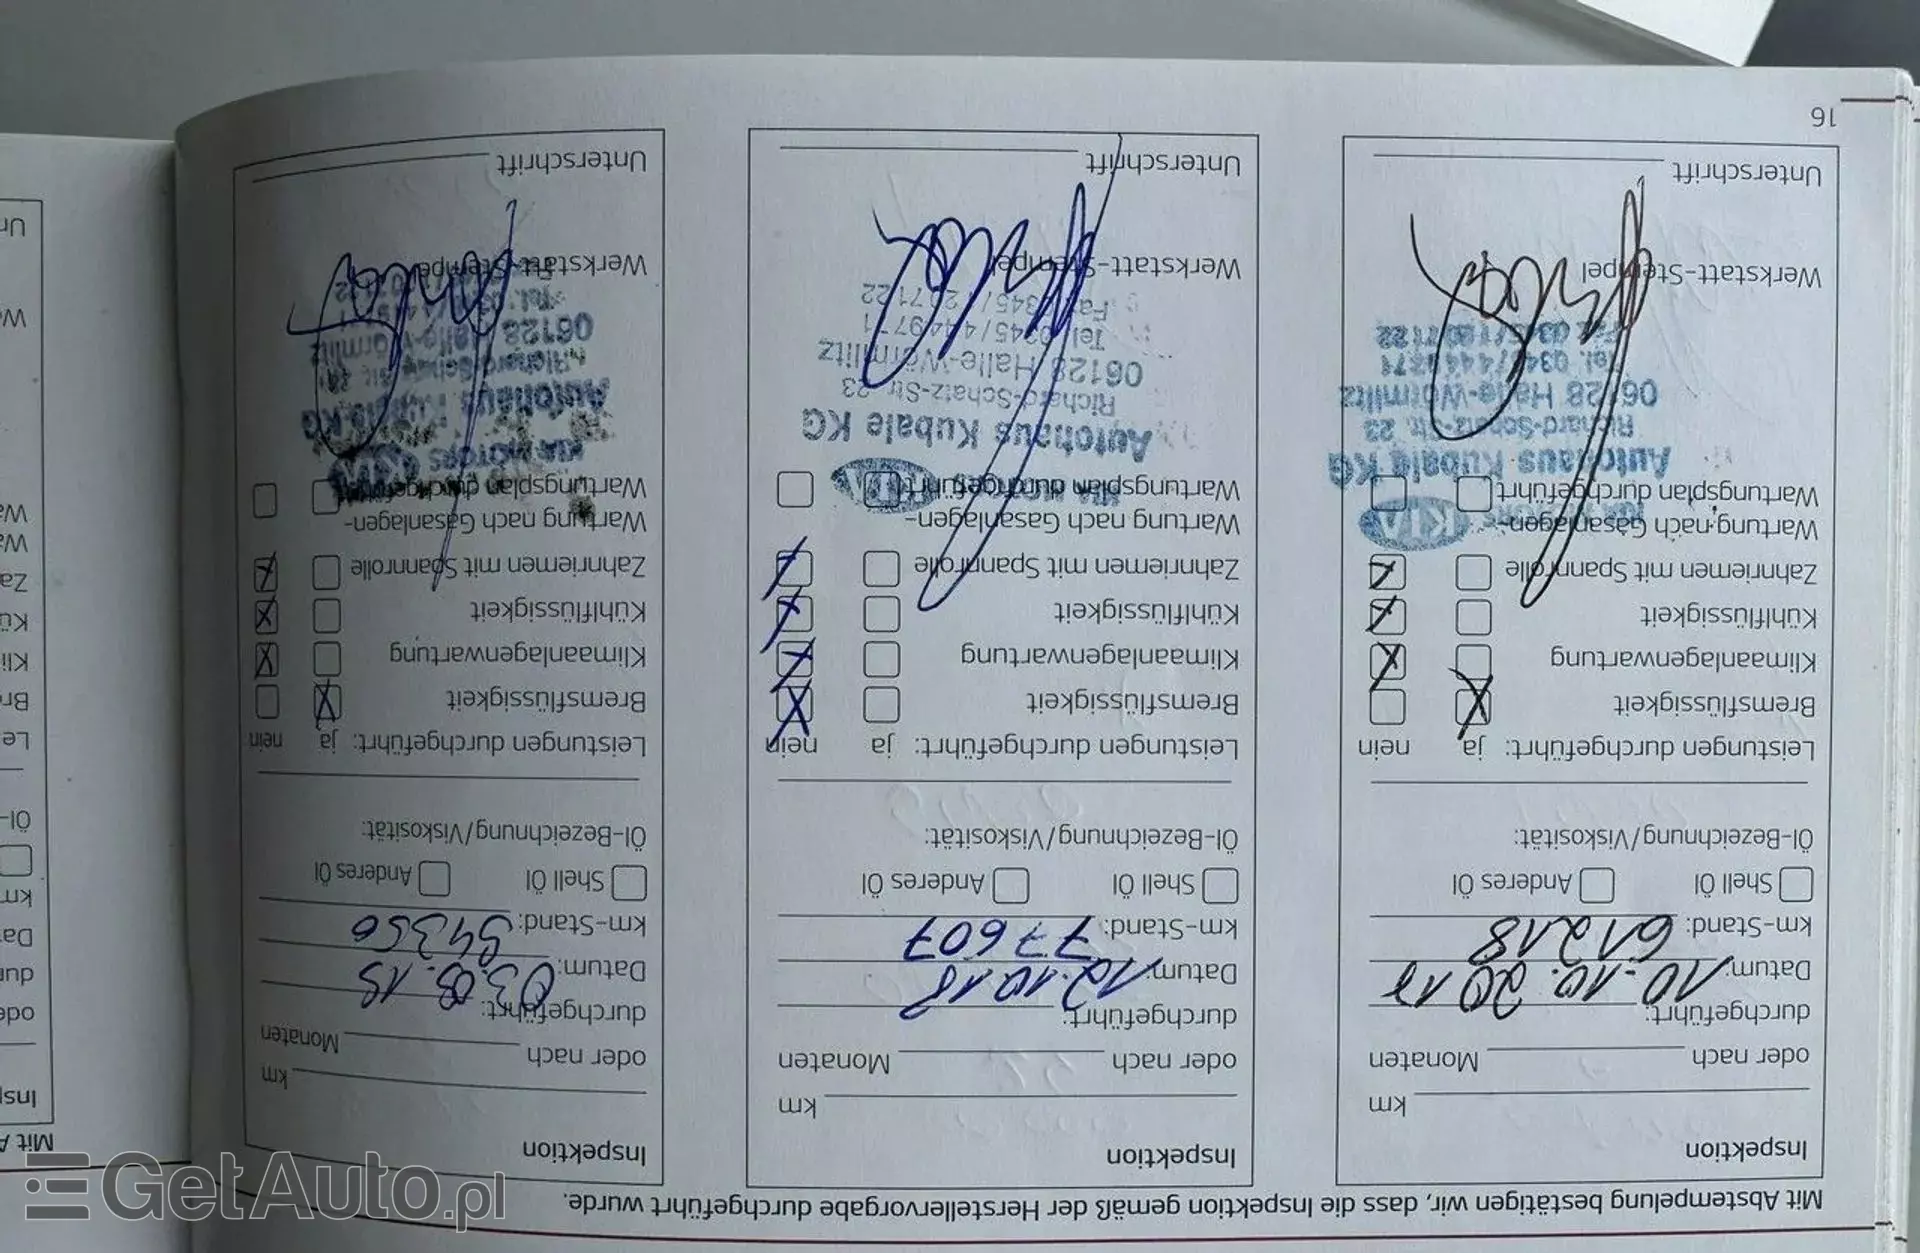 Mit Abstempelung bestätigen wir, dass die Inspektion gemäß der Herstellervorgabe durchgeführt wurde.
Inspektion
km
oder nach Monaten
durchgeführt:
Datum: 10.10.2017
km-Stand: 61218
Shell Öl Anderes Öl
Öl-Bezeichnung/Viskosität:
Leistungen durchgeführt: ja nein
Bremsflüssigkeit
Klimaanlagenwartung
Kühlflüssigkeit
Zahnriemen mit Spannrolle
Wartung nach Gasanlagen-
Wartungsplan durchgeführt
KIA
Autohaus Kubale KG
Richard-Schatz-Str. 23
06128 Halle-Wörmlitz
Tel. 0345/4449771
Werkstatt-Stempel
Unterschrift
Inspektion
km
oder nach Monaten
durchgeführt:
Datum: 12.10.18
km-Stand: 77607
Shell Öl Anderes Öl
Öl-Bezeichnung/Viskosität:
Leistungen durchgeführt: ja nein
Bremsflüssigkeit
Klimaanlagenwartung
Kühlflüssigkeit
Zahnriemen mit Spannrolle
Wartung nach Gasanlagen-
Wartungsplan durchgeführt
KIA
Autohaus Kubale KG
Richard-Schatz-Str. 23
06128 Halle-Wörmlitz
Tel. 0345/4449771
Werkstatt-Stempel
Unterschrift
Inspektion
km
oder nach Monaten
durchgeführt:
Datum: 03.09.19
km-Stand: 94356
Shell Öl Anderes Öl
Öl-Bezeichnung/Viskosität:
Leistungen durchgeführt: ja nein
Bremsflüssigkeit
Klimaanlagenwartung
Kühlflüssigkeit
Zahnriemen mit Spannrolle
Wartung nach Gasanlagen-
Wartungsplan durchgeführt
KIA MOTORS KIA
Autohaus Kubale KG
Richard-Schatz-Str.
06128 Halle-Wörmlitz
Werkstatt-Stempel
Unterschrift
16
Mit A
Insp
oder
dur
Dat
km
Öl-
Le
Br
Kli
Kü
Za
Wa
Wa
We
Un
GetAuto.pl